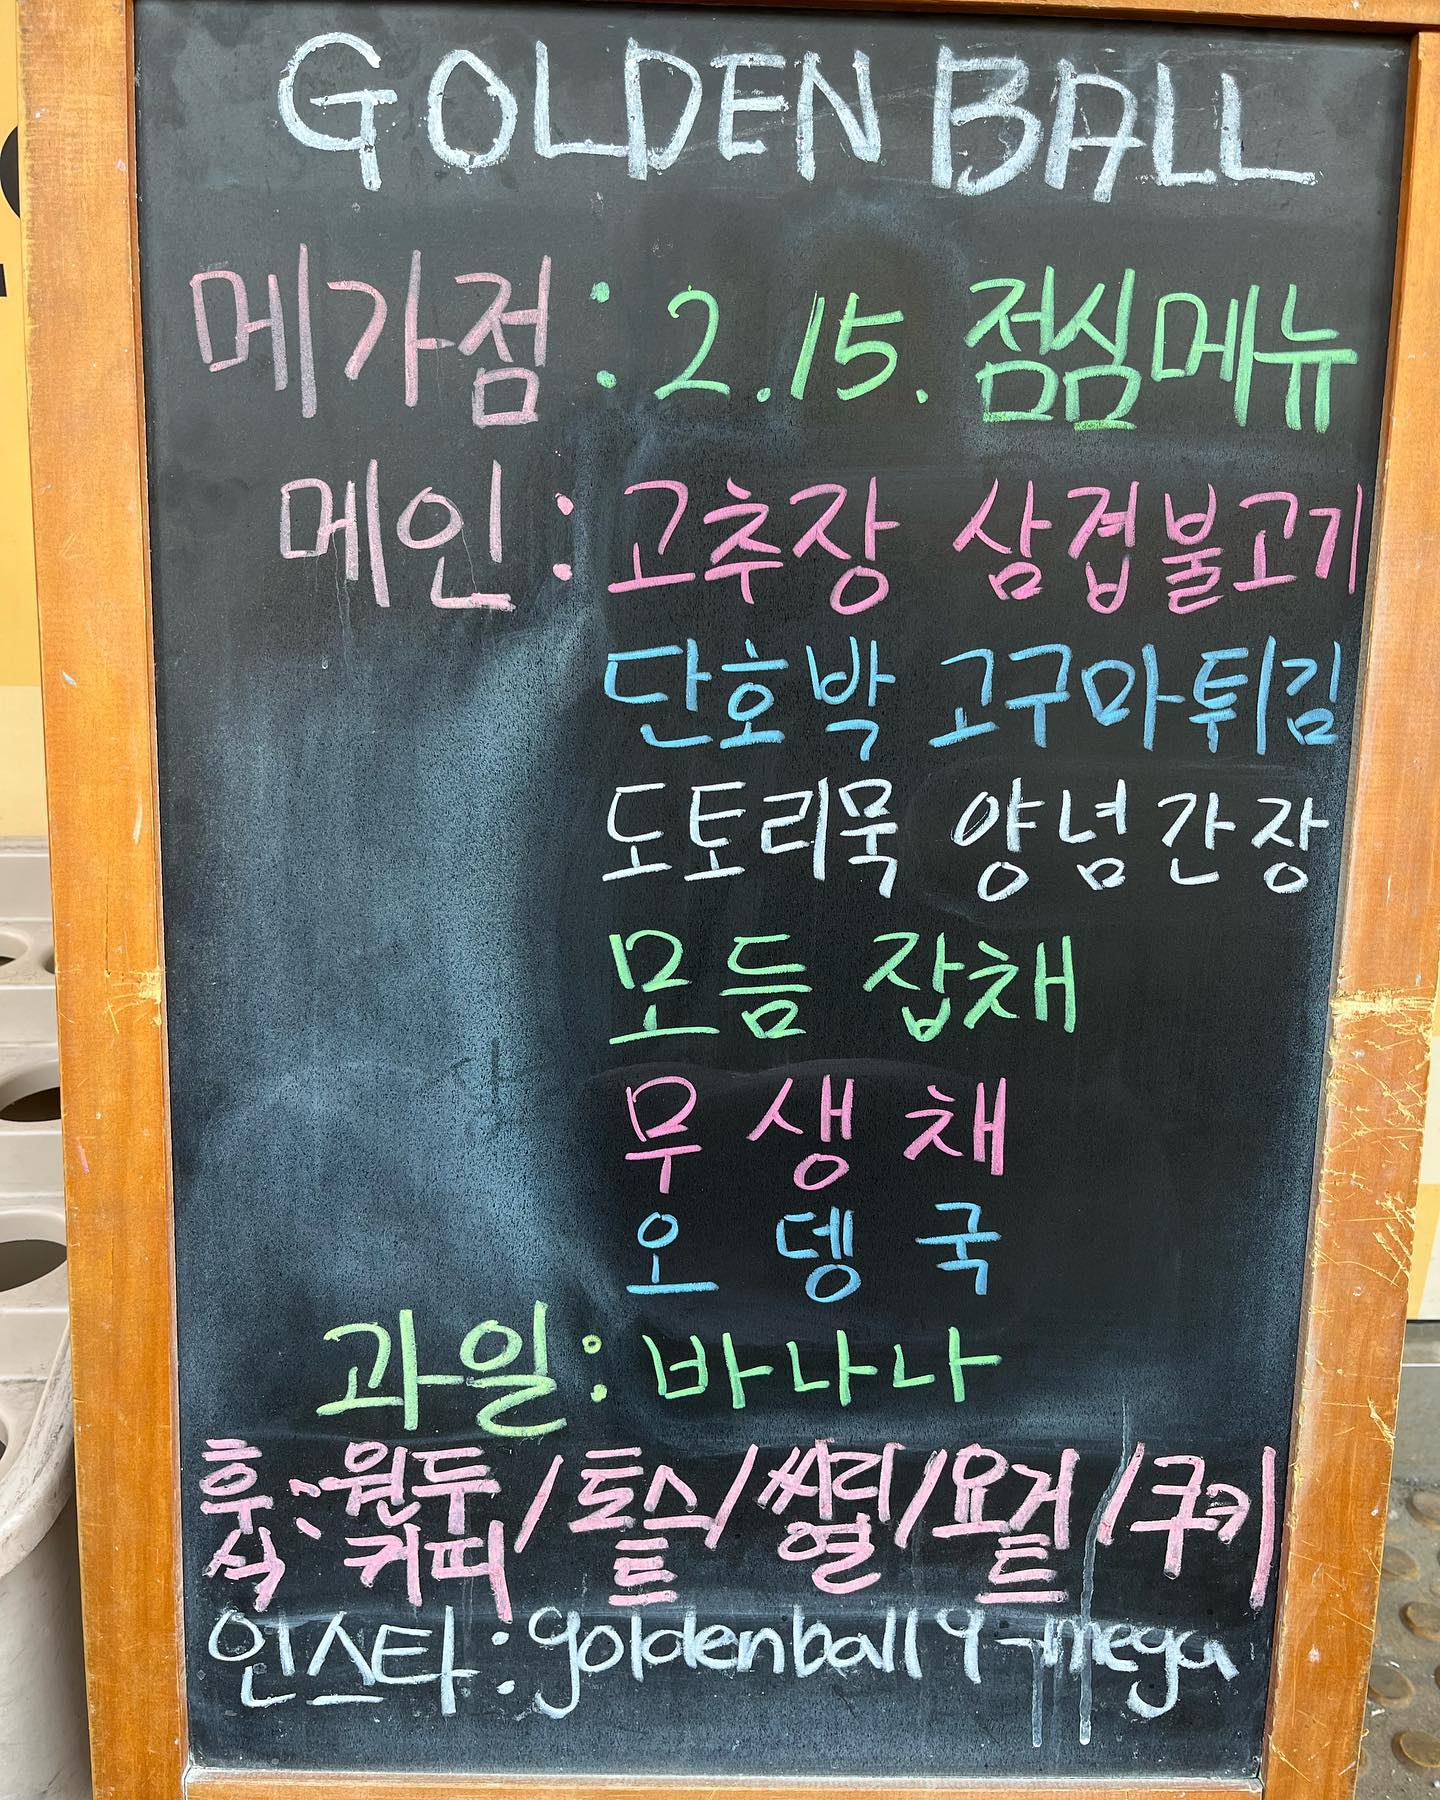 GOLDEN BALL
메가점 : 2.15. 점심메뉴
메인 : 고추장 삼겹불고기
단호박 고구마튀김
도토리묵 양념간장
모듬 잡채
무생채
오뎅국
과일 : 바나나
후식 : 원두커피 / 토스트 / 씨리얼 / 요거트 / 쿠키
인스타 : goldenball9_mega